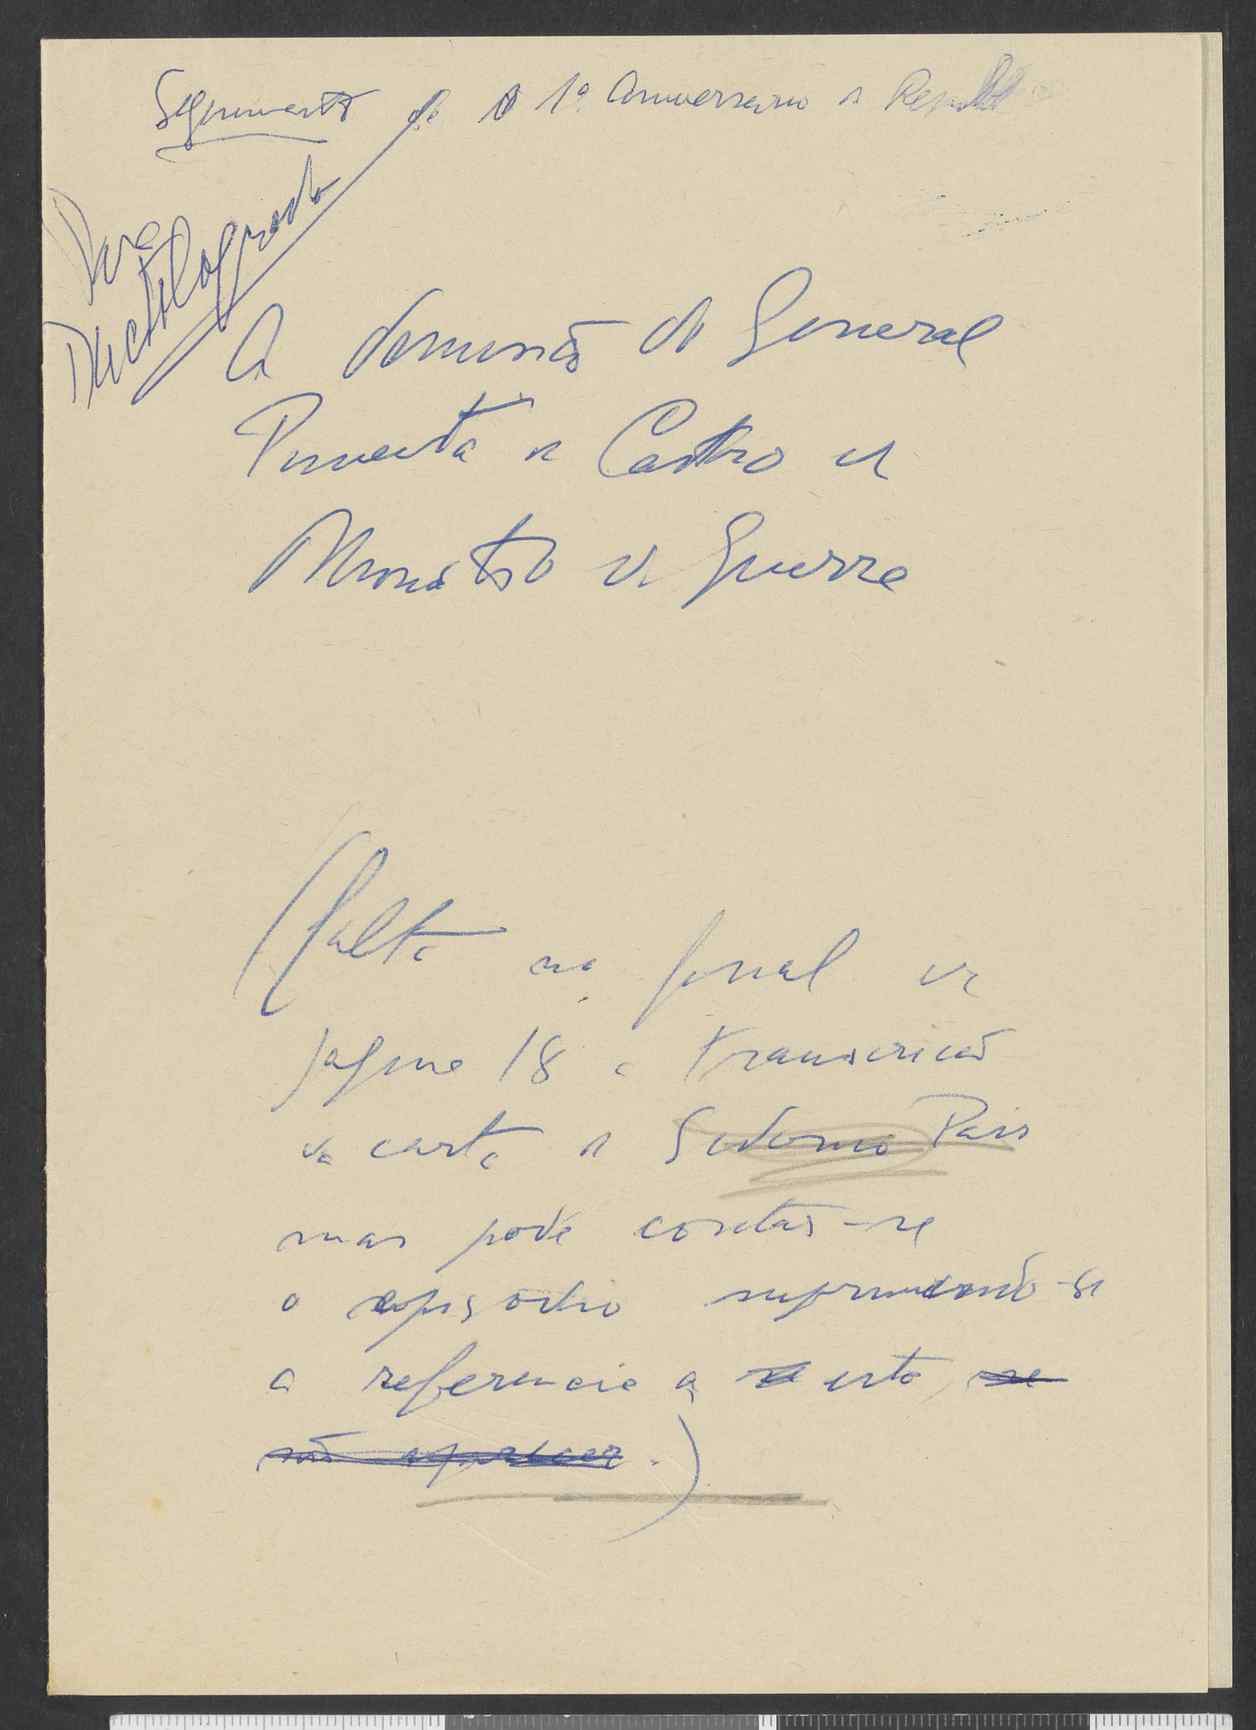 Seguimento de o 1º Aniversario da
Para
Dactilografado
A demissão do General
Pimenta de Castro de
Ministro da Guerra
(Falta no final da
pagina 18 a transcrição
da carta de Sidonio Pais
mas pode contar-se
o episodio suprimindo-se
a referencia a esta, se
não aparecer.)